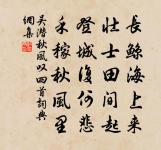 長鯨海上來
壯士田間起
登城復何悲
禾稼秋風里
吳潛秋風叹四首詞典
網集